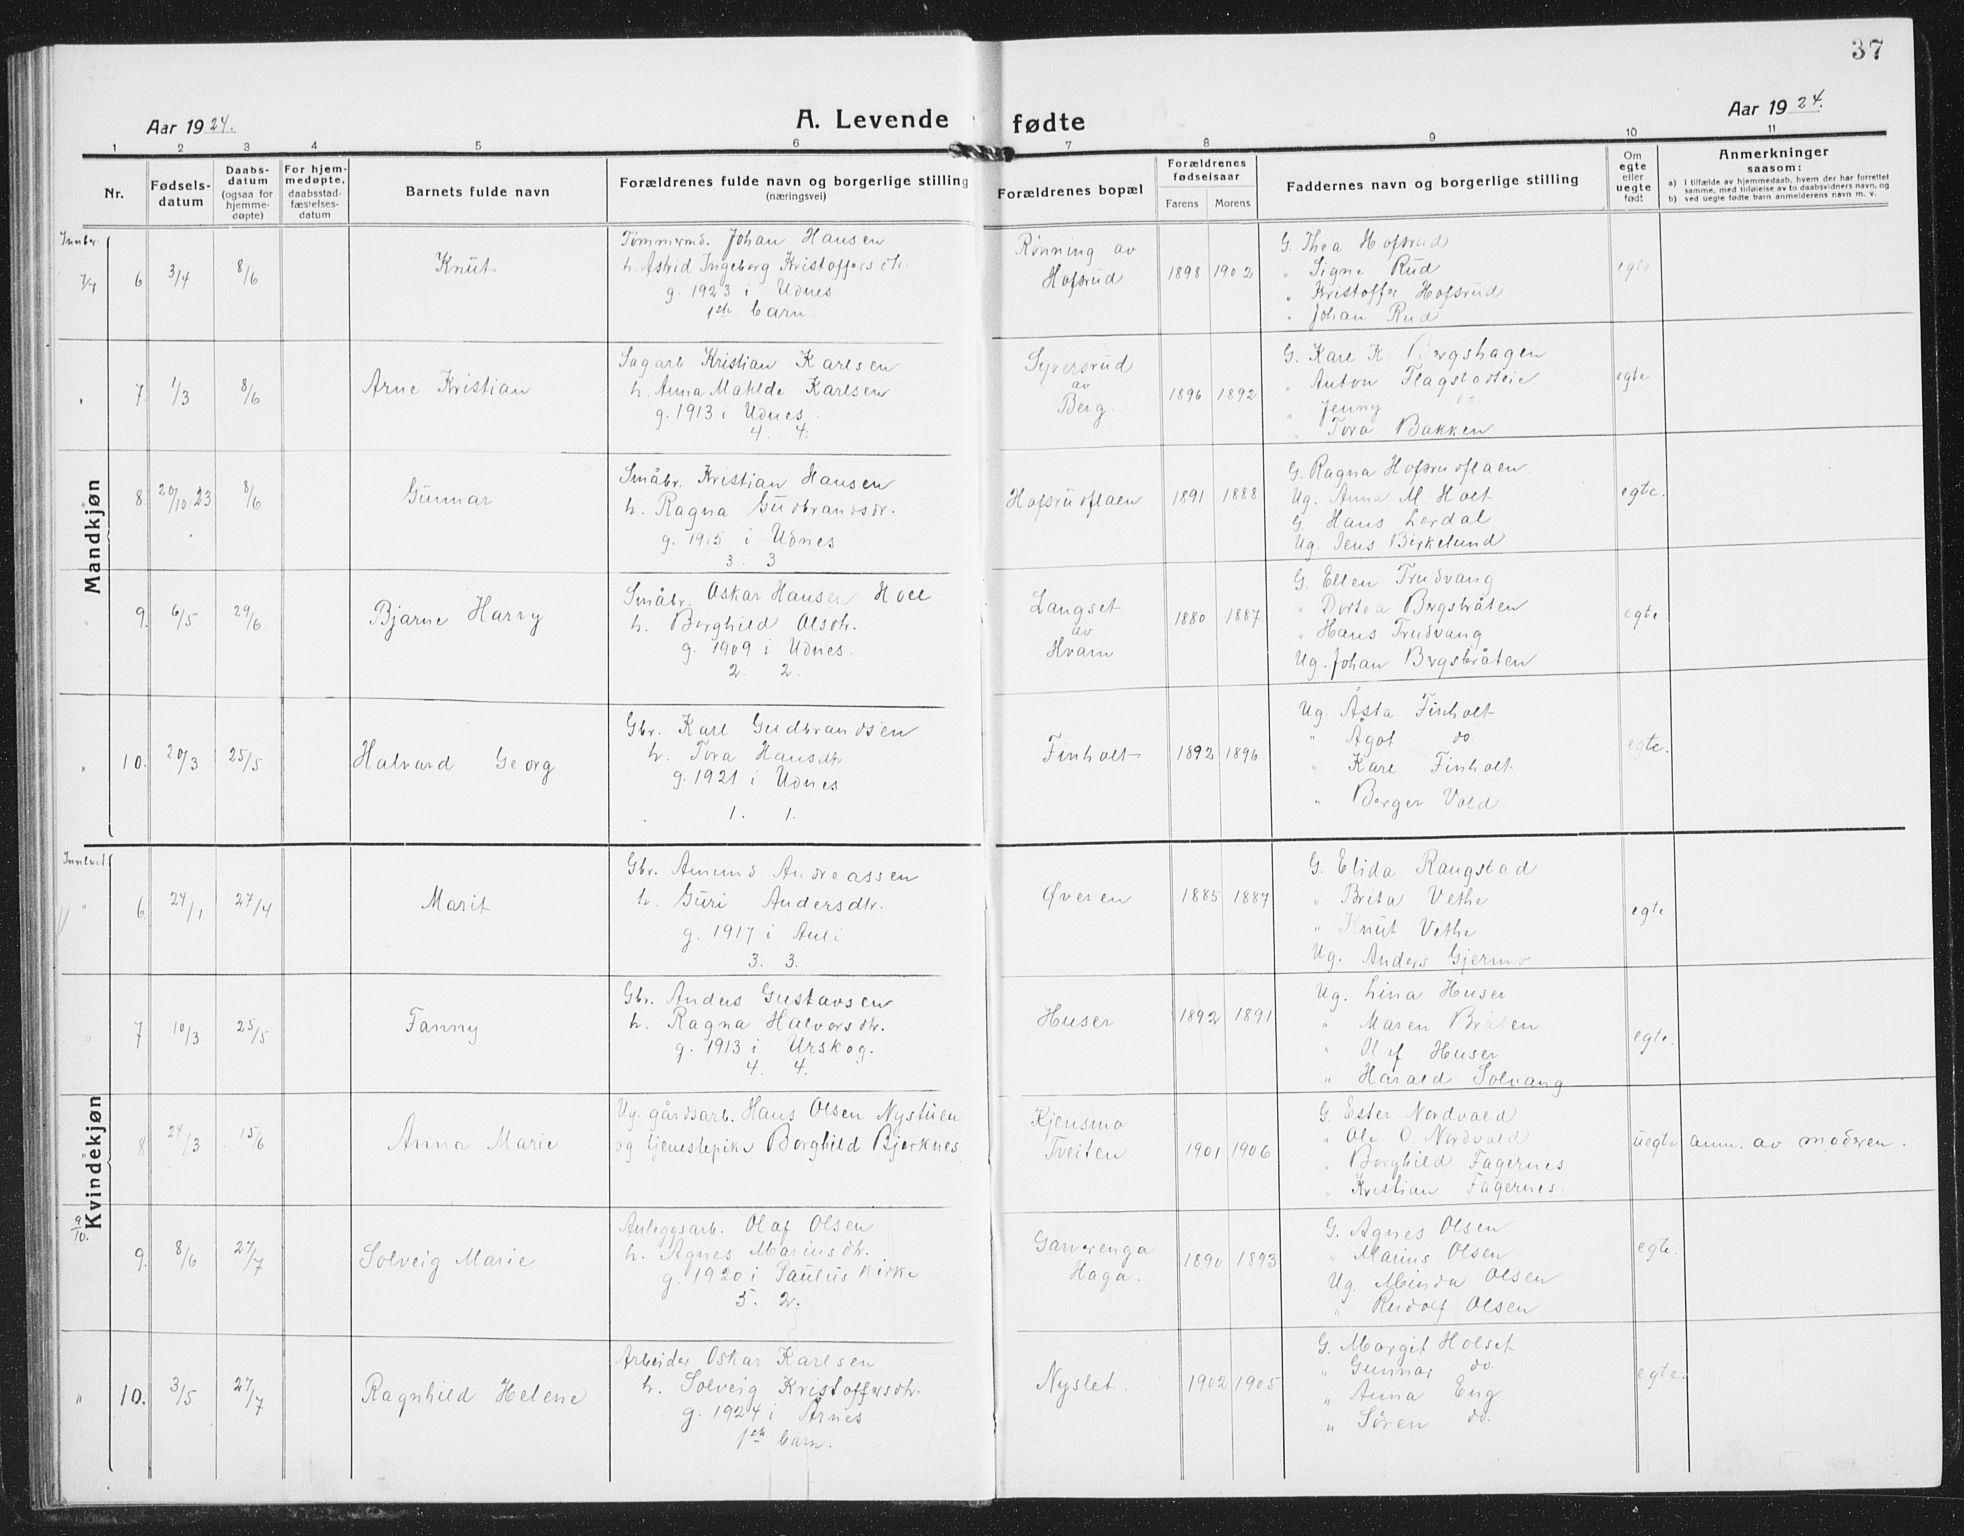 37
Aar 1924.
A. Levende fødte
Aar 1924.
1 2 3 4 5 6 7 8 9 10 11
Nr.
Fødsels-
datum
Daabs-
datum
(ogsaa for
hjemme-
døpte)
For hjem-
medøpte,
daabsstad-
fæstelses-
datum
Barnets fulde navn
Forældrenes fulde navn og borgerlige stilling
(næringsvei)
Forældrenes bopæl
Forældrenes
fødselsaar
Farens Morens
Faddernes navn og borgerlige stilling
Om
egte
eller
uegte
født
Anmerkninger
saasom:
a) I tilfælde av hjemmedaab, hvem der har forrettet
samme, med tilføielse av to daabsvidners navn, og
b) ved uegte fødte barn anmelderens navn m. v.
Mandkjøn
Innber.
7/4
6 3/4 8/6
Knut
Tømmermd. Johan Hansen
h. Astrid Ingeborg Kristoffersdtr.
g. 1923 i Udnes
1ste barn.
Rønning av
Hofsrud
1898 1902
G. Thea Hofsrud
" Signe Rud
" Kristoffer Hofsrud
" Johan Rud
egte
7. 1/3 8/6
Arne Kristian
Sagarb. Kristian Karlsen
h. Anna Matilde Karlsen
g. 1913 i Udnes.
4. 4.
Syversrud
av
Berg.
1896 1892
G. Karl K. Bergshagen
" Anton Flagstadteie
" Jenny do.
" Tora Bakken
egte
8. 20/10 23 8/6
Gunnar
Småbr. Kristian Hansen
h. Ragna Gudbrandsdr.
g. 1915 i Udnes
3. 3
Hofsrudflaen
1891 1888
G. Ragna Hofsrudflaen.
Ug. Anna M. Holt
G. Hans Lerdal
Ug. Jens Birkelund
egte.
9. 6/5 29/6
Bjarne Harry
Småbr. Oskar Hansen Holl
h. Borghild Olsdtr.
g. 1909 i Udnes.
2. 2.
Langset
av
Hvam
1880 1887
G. Ellen Trudvang
" Dortea Bergsbråten
" Hans Trudvang
Ug. Johan Bergsbråten
egte.
" 10. 20/3 25/5
Halvard Georg
Gbr. Karl Gudbrandsen
h. Tora Hansdtr
g. 1921 i Udnes
1. 1.
Finholt
1892 1896
Ug. Åsta Finholt
" Ågot do.
" Karl Finholt
" Berger Vold
egte.
Kvindekjøn
" 6. 24/1 27/4
Marit
Gbr. Amund Andreassen
h. Guri Andersdtr.
g. 1917 i Auli
3. 3.
Øveren
1885 1887
G. Elida Rangstad
" Brita Vethe
" Knut Vethe
Ug. Anders Gjermo
egte
" 7 10/3 25/5
Fanny
Gbr. Anders Gustavsen
h. Ragna Halvorsdtr.
g. 1913 i Urskog.
4. 4.
Huser
1892 1891
Ug. Lina Huser
" Maren Bråten
" Olaf Huser
" Harald Solvang
egte.
8 24/3 15/6
Anna Marie
Ug. gårdsarb. Hans Olsen Nystuen
og tjenestepike Borghild Bjerknes
Kjensmo
Tveiten
1901 1906
G. Ester Nordvald
" Ole O. Nordvald
" Borghild Fagernes
" Kristian Fagernes.
uegte
anm. av moderen.
9/10.
9. 8/6 27/7
Solveig Marie
Anleggsarb. Olaf Olsen
h. Agnes Mariusdtr.
g. 1920 i Paulus kirke
5. 2.
Garverenga
Haga.
1890 1893
G. Agnes Olsen
" Marius Olsen
Ug. Minda Olsen
" Rudolf Olsen
egte.
" 10. 3/5 27/7
Ragnhild Helene
Arbeider Oskar Karlsen
h. Solveig Kristoffersdtr.
g. 1924 i Årnes
1ste barn.
Nyslet.
1902 1905
G. Margit Holset
" Gunnar do.
" Anna Eng
" Søren do.
egte.